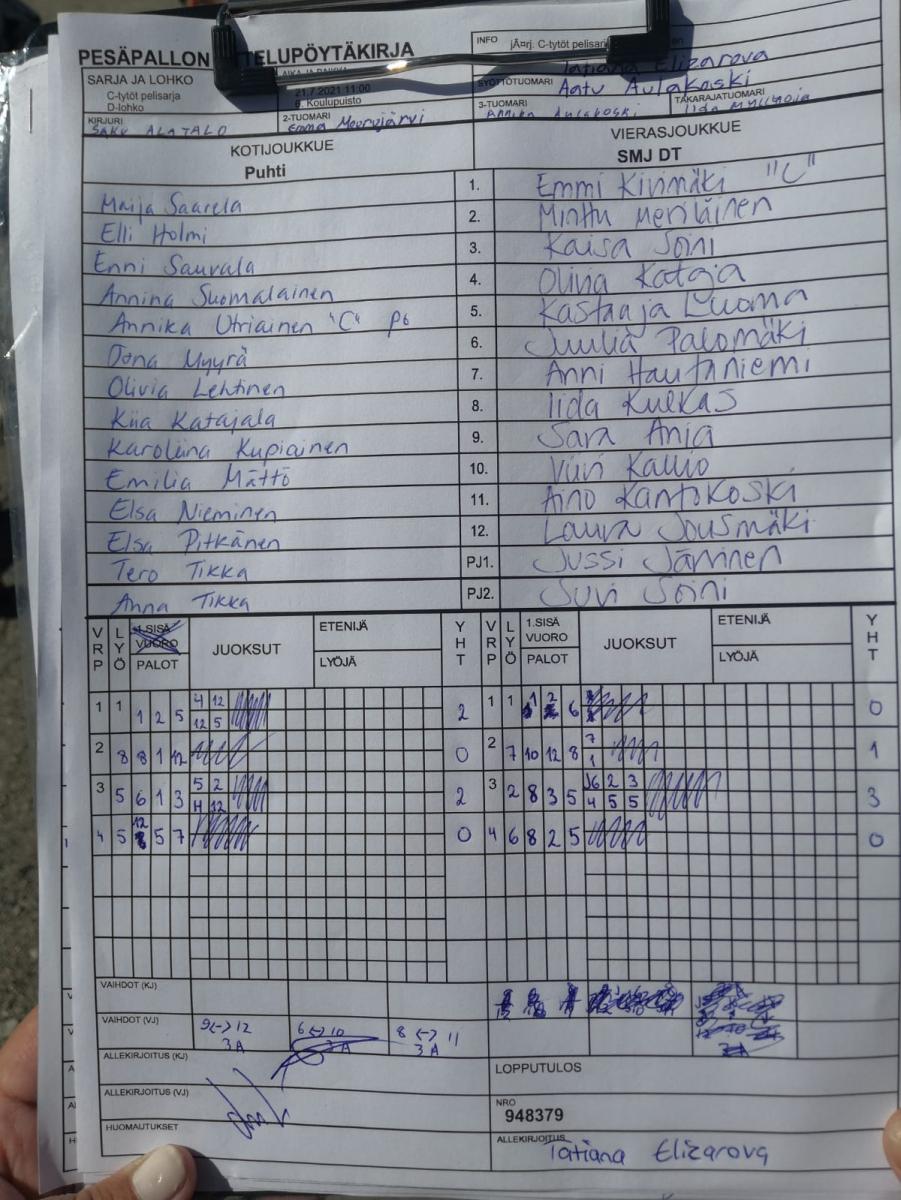 PESÄPALLON TTELUPÖYTÄKIRJA
INFO jÃ¤rj. C-tytöt pelisarj en
Tatiana Elizarova
SARJA JA LOHKO
C-tytöt pelisarja
D-lohko
AIKA JA PAIKKA
21.7.2021 11:00
6. Koulupuisto
SYÖTTÖTUOMARI
Aatu Aulakoski
KIRJURI
SAKU ALATALO
2-TUOMARI
Emma Meurujärvi
3-TUOMARI
Annika Aulakoski
TAKARAJATUOMARI
Iida Myllyoja
KOTIJOUKKUE VIERASJOUKKUE
Puhti SMJ DT
Maija Saarela 1. Emmi Kivimäki "C"
Elli Holmi 2. Minttu Meriläinen
Enni Sauvala 3. Kaisa Soini
Annina Suomalainen 4. Olivia Kataja
Annika Utriainen "C" P6 5. Kastanja Luoma
Oona Myyrä 6. Juulia Palomäki
Olivia Lehtinen 7. Anni Hautaniemi
Kiia Katajala 8. Iida Kulkas
Karoliina Kupiainen 9. Sara Ania
Emilia Mättö 10. Viivi Kallio
Elsa Nieminen 11. Aino Kantokoski
Elsa Pitkänen 12. Laura Jousmäki
Tero Tikka PJ1. Jussi Jäminen
Anna Tikka PJ2. Suvi Soini
VRP LYÖ 1.SISÄ VUORO PALOT JUOKSUT ETENIJÄ LYÖJÄ YHT VRP LYÖ 1.SISÄ VUORO PALOT JUOKSUT ETENIJÄ LYÖJÄ YHT
1 1 1 2 5 4 12 2 1 1 1 2 6 0
12 5
2 8 8 1 12 0 2 7 10 12 8 7 1
1
3 5 6 1 3 5 2 2 3 2 8 3 5 6 2 3 3
4 12 4 5 5
4 5 12 5 7 0 4 6 8 2 5 0
VAIHDOT (KJ)
VAIHDOT (VJ) 9<->12 6<->10 8<->11
3A 3A 3A
ALLEKIRJOITUS (KJ)
LOPPUTULOS
ALLEKIRJOITUS (VJ)
NRO
948379
HUOMAUTUKSET
ALLEKIRJOITUS
Tatiana Elizarova